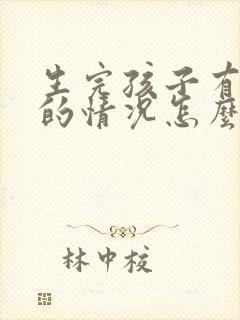 生完孩子有
的情况怎麼
林中校